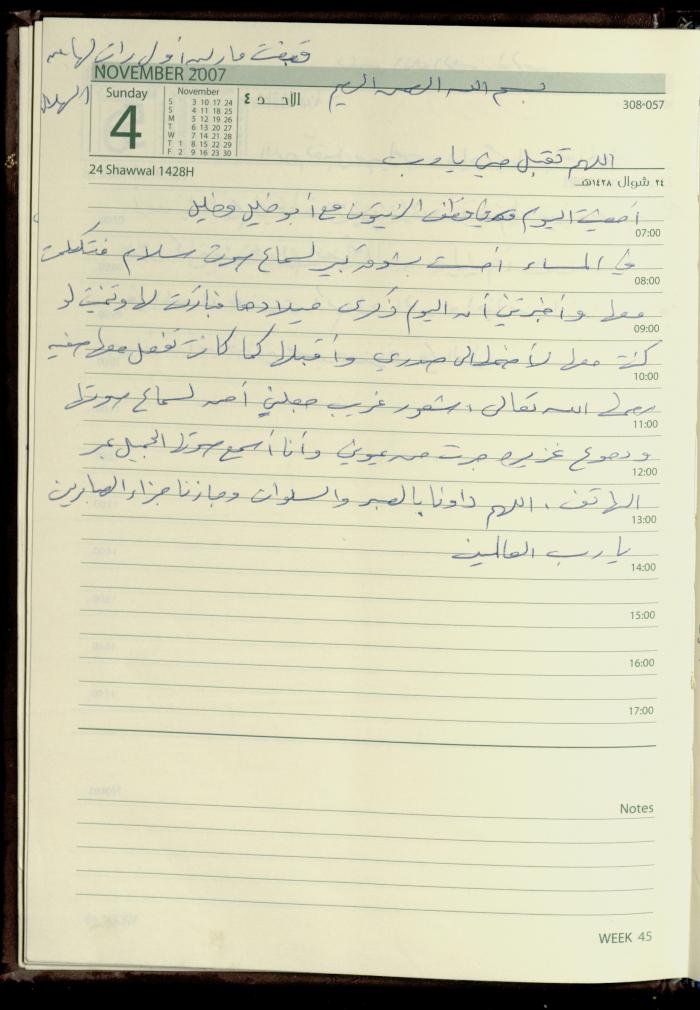 قبضت مارلين أول راتب لها من
الهلال
NOVEMBER 2007
بسم الله الرحمن الرحيم
Sunday
4
November
S 3 10 17 24
S 4 11 18 25
M 5 12 19 26
T 6 13 20 27
W 7 14 21 28
T 1 8 15 22 29
F 2 9 16 23 30
الأحد ٤
308-057
اللهم تقبل مني يا رب
24 Shawwal 1428H
٢٤ شوال ١٤٢٨هـ
أمضيت اليوم في قطف الزيتون مع أبو خليل وخليل
07:00
في المساء أحسست بشوق كبير لسماع صوت سلام فتكلمت
08:00
معها وأخبرتني أن اليوم ذكرى ميلادها فباركت لها وتمنيت لو
09:00
كنت معها لأضمها الى صدري وأقبلها كما كانت تفعل معها صفية
10:00
رحمها الله تعالى، شعور غريب جعلني أحن لسماع صوتها
11:00
ودموع غزيرة جرت من عيوني وأنا أسمع صوتها الجميل عبر
12:00
الهاتف، اللهم داونا بالصبر والسلوان وجازنا جزاء الصابرين
13:00
يا رب العالمين
14:00
15:00
16:00
17:00
Notes
WEEK 45